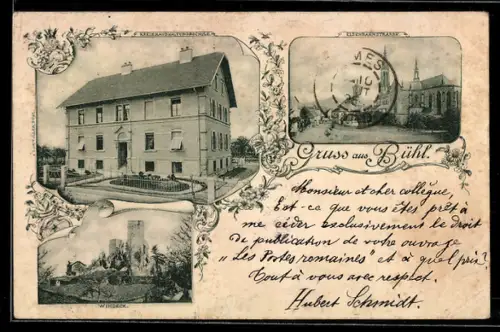 KREISHAUSHALTUNGSSCHULE
EISENBAHNSTRASSE
Gruss aus Bühl.
Monsieur et cher collègue,
Est-ce que vous êtes prêt à
me céder exclusivement le droit
de publication de votre ouvrage
„Les Postes romaines" et à quel prix?
Tout à vous avec respect.
Hubert Schmidt.
WINDECK